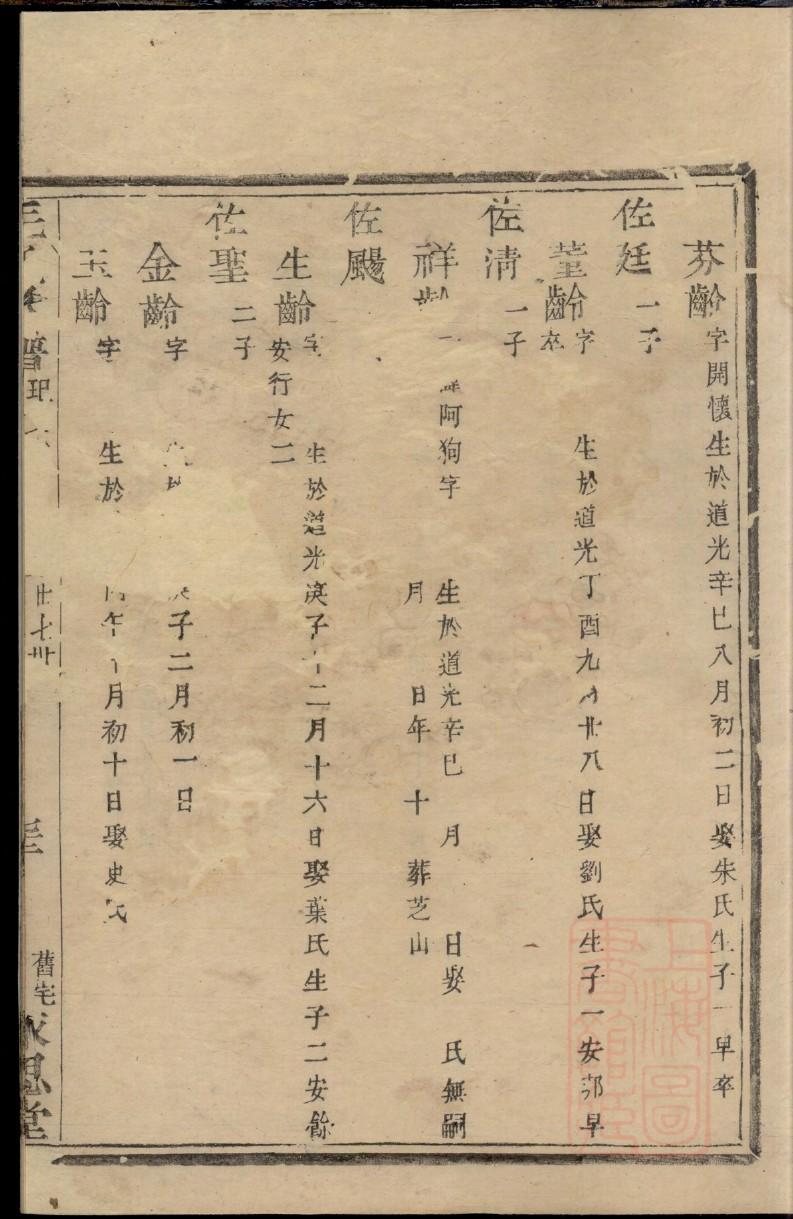 芬齡字開懷生於道光辛巳八月初二日娶朱氏生子一早卒
佐廷一子
蓳齡字 生於道光丁酉九月廿八日娶劉氏生子一安邦早
卒
佐清一子
祥齡 阿狗字 生於道光辛巳 月 日娶 氏無嗣
月 日年 十 葬芝山
佐颺
生齡字 生於道光庚子十二月十六日娶葉氏生子二安餘
安行女二
佐聖二子
金齡字 子二月初一日
玉齡字 生於 午 月初十日娶史氏
譜 廿七卅 三 舊宅永思堂
上海圖書館藏